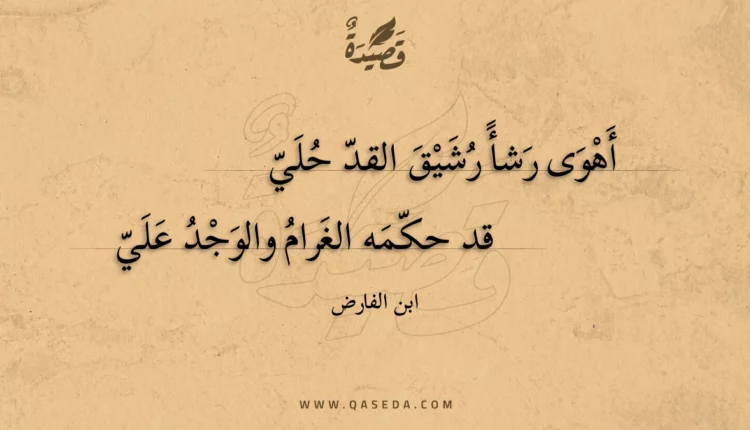 قَصِيْدَةٌ
أَهْوَى رَشأً رُشَيْقَ القدّ حُلَيّ
قد حكّمَه الغَرامُ والوَجْدُ عَلَيّ
ابن الفارض
WWW.QASEDA.COM